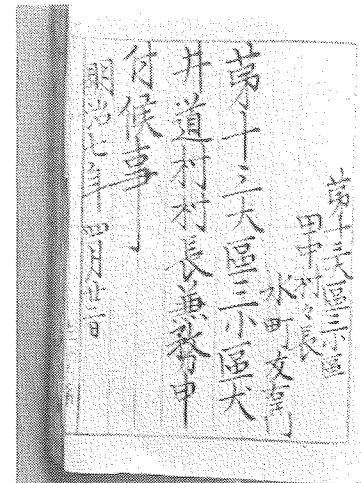 第十三大區三小區
田中村々長
水町文右エ門
第十三大區三小區犬
井道村村長兼務申
付候事
明治七年四月廿二日